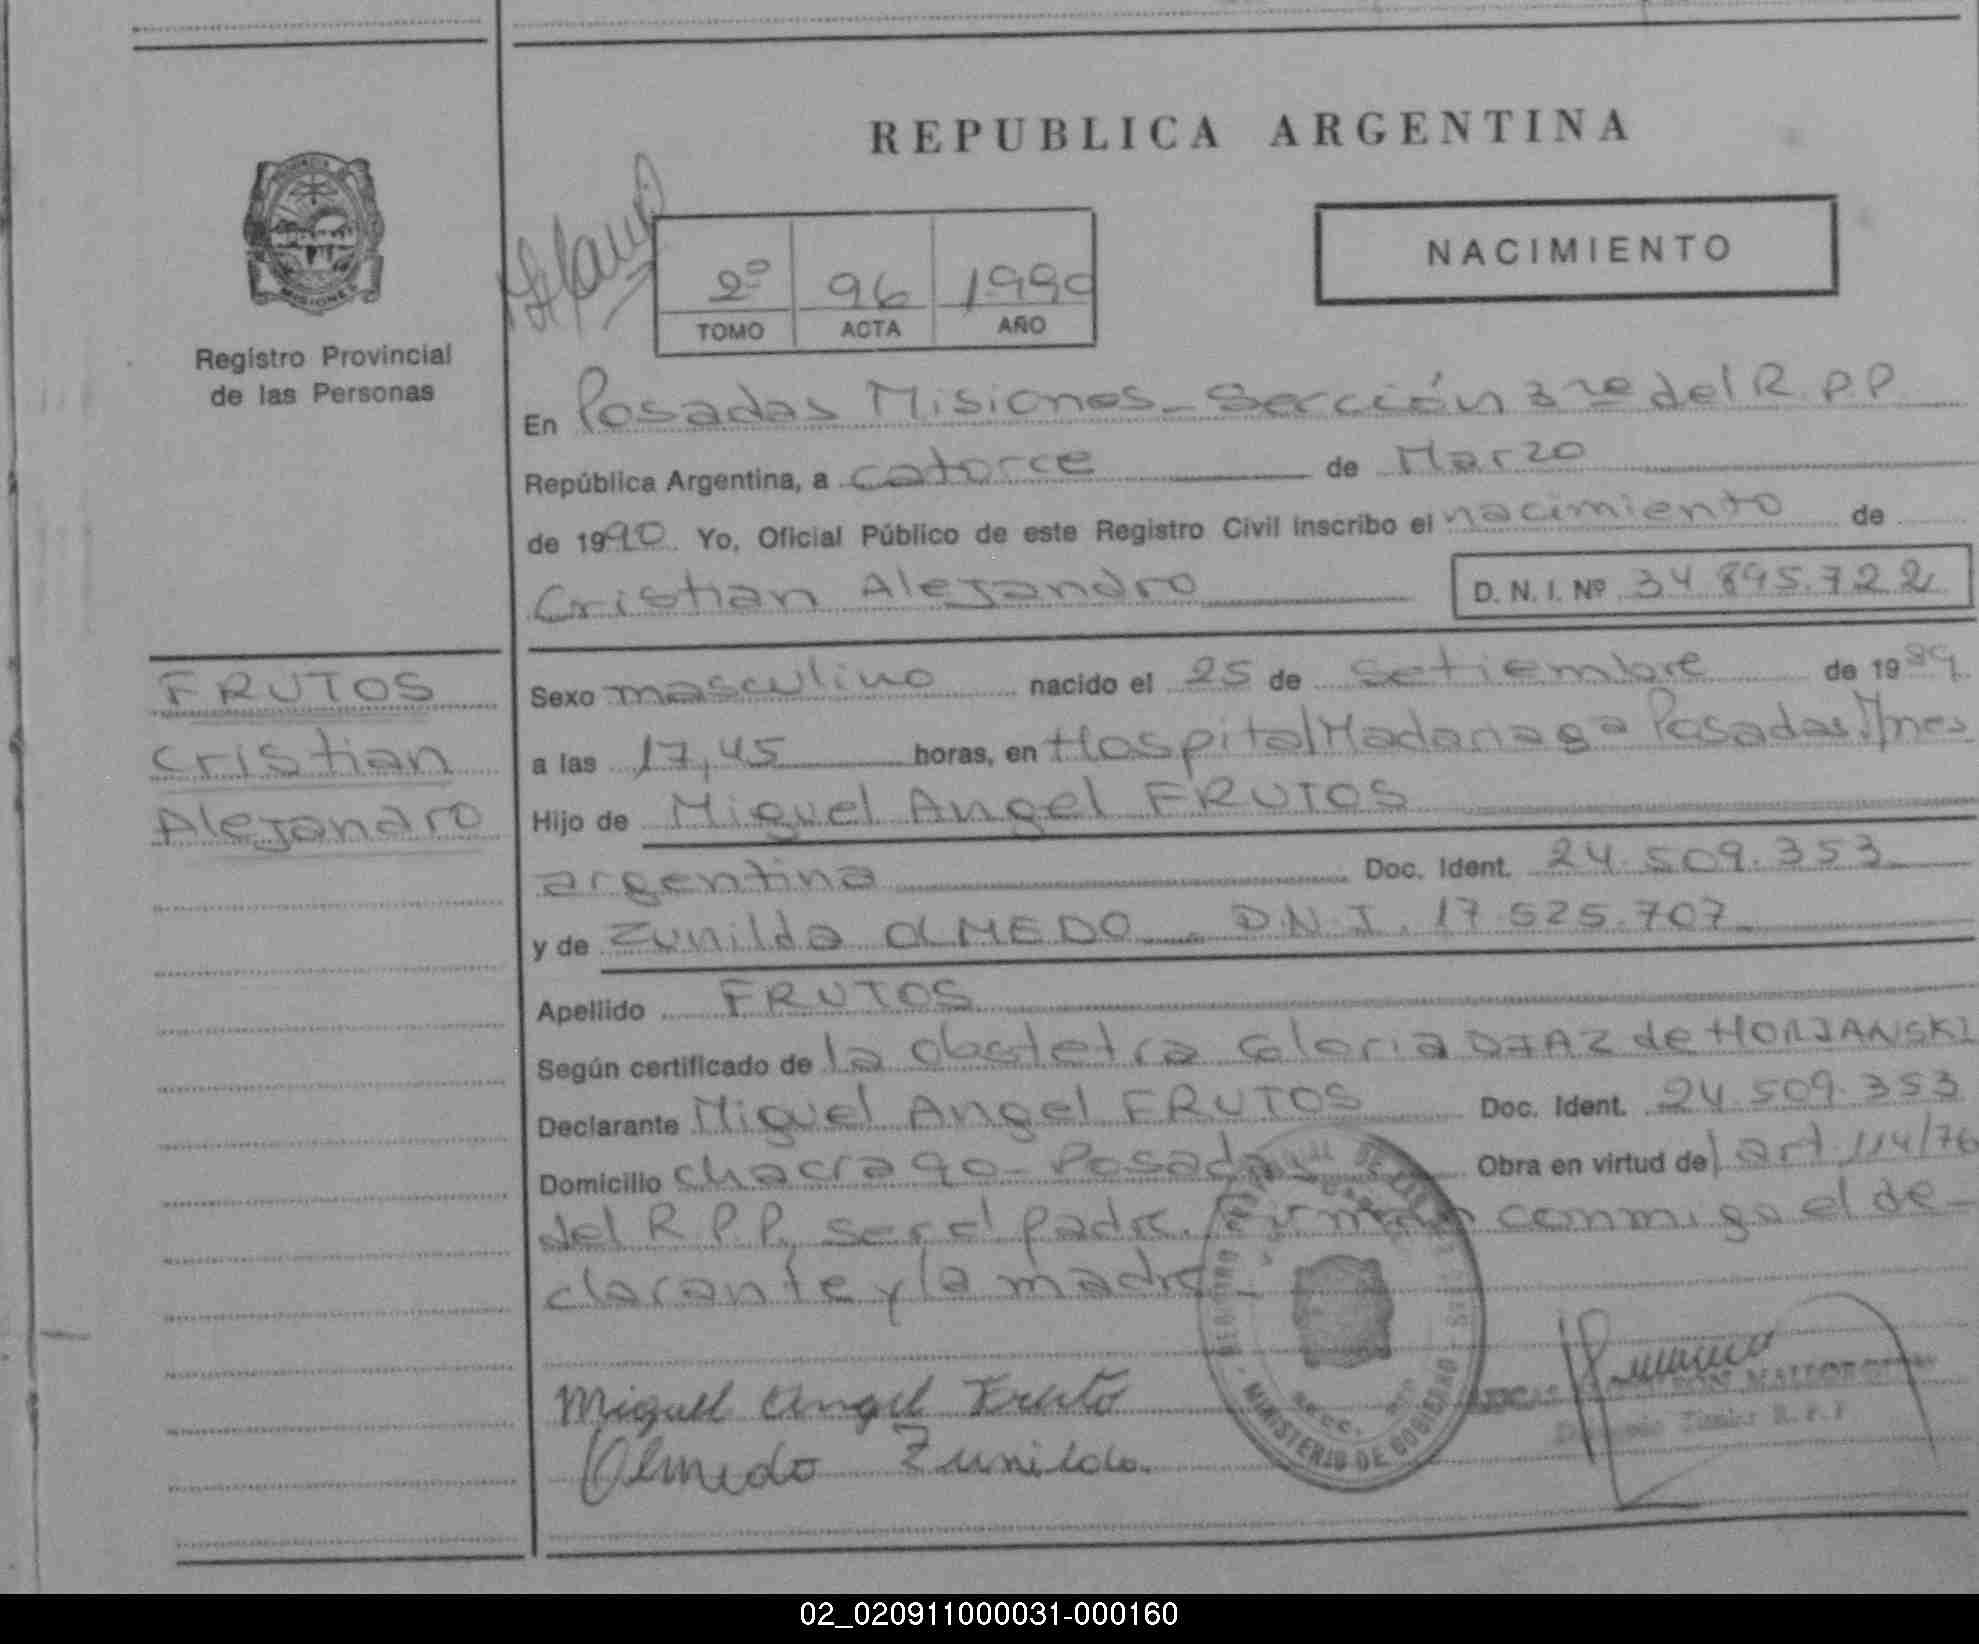 REPUBLICA ARGENTINA
NACIMIENTO
2º 96 1990
TOMO ACTA AÑO
PROVINCIA
MISIONES
Registro Provincial
de las Personas
En Posadas Misiones - Sección 3ra del R.P.P.
República Argentina, a catorce de Marzo
de 1990 Yo, Oficial Público de este Registro Civil inscribo el nacimiento de
Cristian Alejandro D. N. I. Nº 34.895.722
FRUTOS
Cristian
Alejandro
Sexo masculino nacido el 25 de Setiembre de 1989
a las 17,45 horas, en Hospital Madariaga Posadas Mnes
Hijo de Miguel Angel FRUTOS
argentina Doc. Ident. 24.509.353
y de Zunilda OLMEDO. D.N.I. 17.525.707
Apellido FRUTOS
Según certificado de la obstetra Gloria DIAZ de
Declarante Miguel Angel FRUTOS Doc. Ident. 24.509.353
Domicilio chacra 90 - Posadas Obra en virtud del art. 114/76
del R.P.P. ser el padre. Firman conmigo el de-
clarante y la madre -
Miguel Angel Fruto
Olmedo Zunilda.
MINISTERIO DE GOBIERNO
R.P.P
02_020911000031-000160